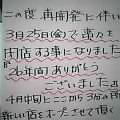 この度、再開発に伴い
3月25日(金)で、
閉店する事になりました
26年間ありがとう
ございました。
4月中旬にここから3分の所
新しい店をオープンさせて頂く